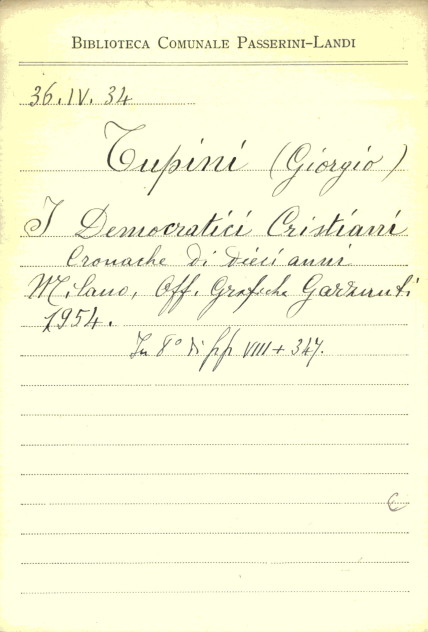 BIBLIOTECA COMUNALE PASSERINI-LANDI
36.IV.34
Tupini (Giorgio)
I Democratici Cristiani
Cronache di dieci anni
Milano, Off. Grafiche Garzanti
1954.
In 8° di pp VIII + 347.
C